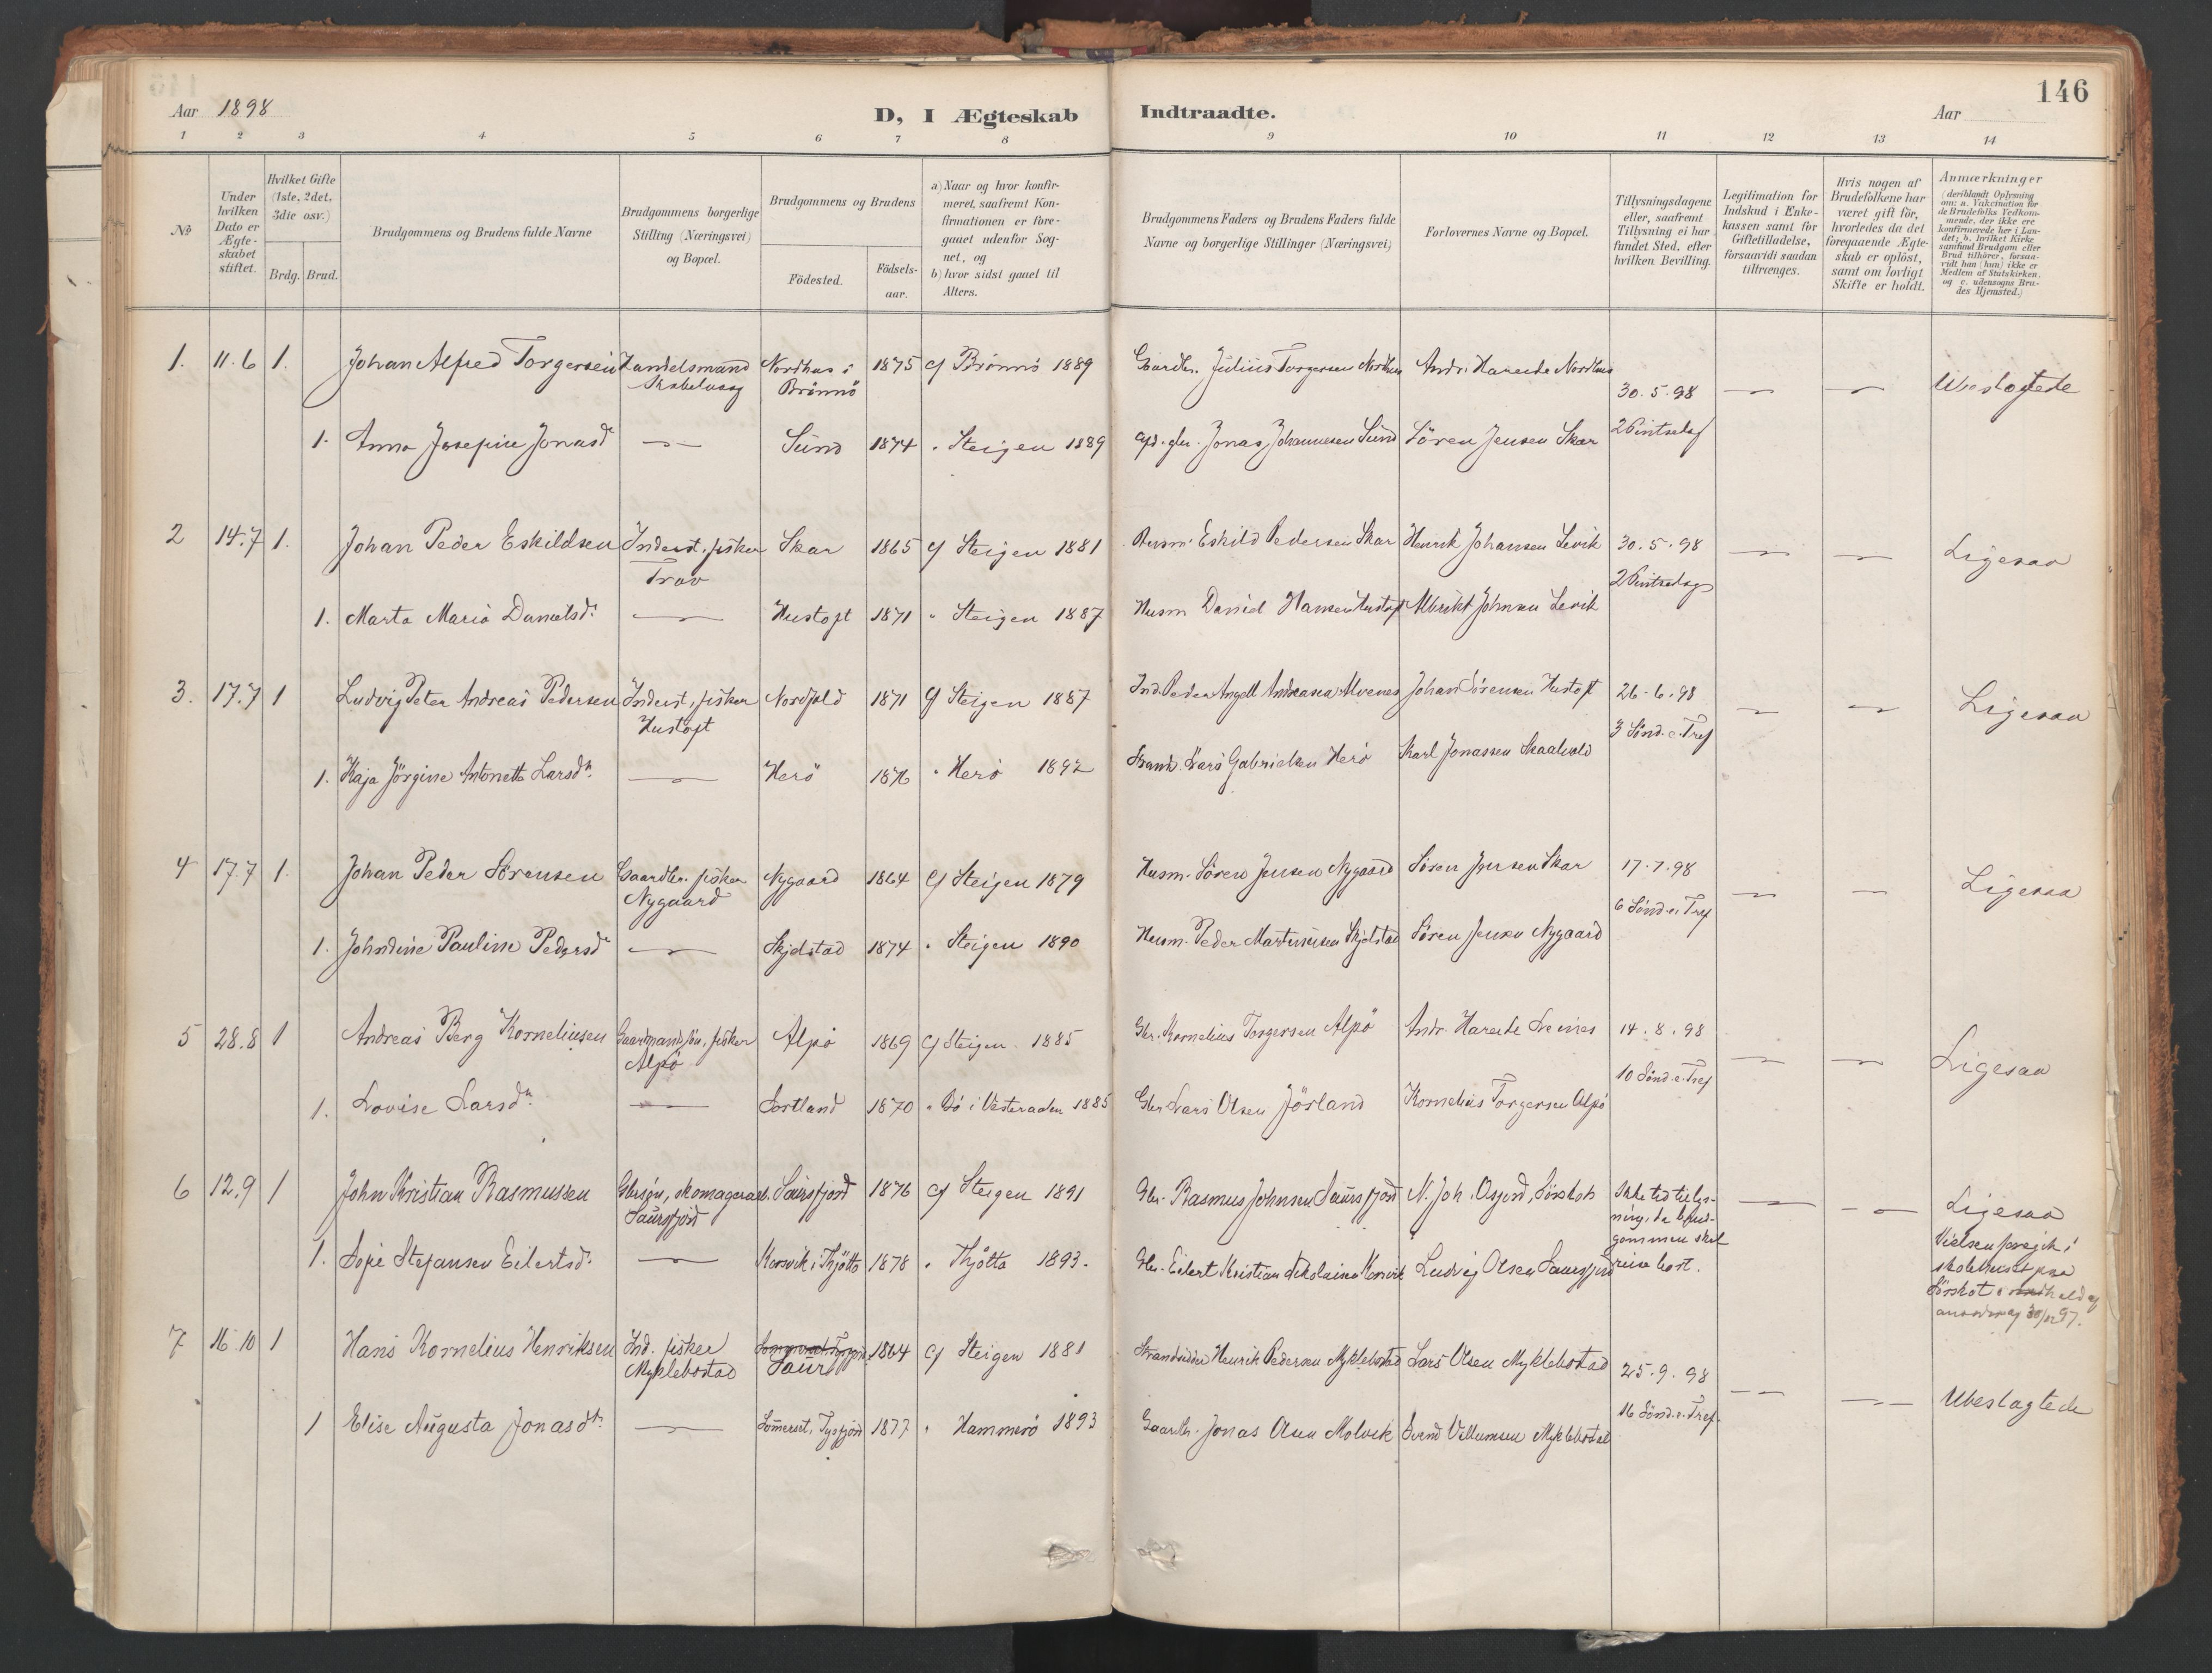 146
Aar 1898
D, I Ægteskab
Indtraadte.
Aar
1 2 3 4 5 6 7 8
9 10 11 12 13 14
№
Under hvilken Dato er Ægteskabet stiftet.
Hvilket Gifte (1ste, 2det, 3die osv.)
Brdg. Brud.
Brudgommens og Brudens fulde Navne
Brudgommens borgerlige Stilling (Næringsvei) og Bopæl.
Brudgommens og Brudens
Födested.
Födselsaar.
a) Naar og hvor konfirmeret, saafremt Konfirmationen er foregaaet udenfor Sognet, og
b) hvor sidst gaaet til Alters.
Brudgommens Faders og Brudens Faders fulde Navne og borgerlige Stillinger (Næringsvei)
Forlovernes Navne og Bopæl.
Tillysningsdagene eller, saafremt Tillysning ei har fundet Sted, efter hvilken Bevilling.
Legitimation for Indskud i Enkekassen samt for Giftetilladelse, forsaavidt saadan tiltrænges.
Hvis nogen af Brudefolkene har været gift för, hvorledes da det foregaaende Ægteskab er oplöst, samt om lovligt Skifte er holdt.
Anmærkninger
(deriblandt Oplysning om: a. Vakcination for de Brudefolks Vedkommende, der ikke ere konfirmerede her i Landet; b. hvilket Kirkesamfund Brudgom eller Brud tilhörer, forsaavidt han (hun) ikke er Medlem af Statskirken, og c. udensogns Brudes Hjemsted.)
1. 11.6 1. Johan Alfred Torgersen Handelsmand Nordhus i Brönnö 1875 Brönnö 1889 Gaardbr. Julius Torgersen Nordhus Andr. Hareide Nordhus 30.5.98 — — Ubeslægtede
1. Anna Josefine Jonasd. — Sund 1874 " Steigen 1889 Jonas Johannesen Sund Sören Jensen Skar 2 Pintsedag
2 14.7 1. Johan Peder Eskildsen Inderst, fisker Skar 1865 Steigen 1881 Husm. Eskild Pedersen Skar Henrik Johansen Levik 30.5.98 — — Ligesaa
1. Marta Maria Danielsd. — Hustoft 1871 " Steigen 1887 Husm Daniel Hansen Hustoft Albrikt Johnsen Levik 2 Pintsedag
3. 17.7 1 Ludvig Peter Andreas Pedersen Inderst, fisker Hustoft Nordfold 1871 Steigen 1887 Ind. Peder Angell Andreasen Alvenes Johan Sörensen Hustoft 26.6.98 — — Ligesaa
1. Kaja Jörgine Antonette Larsdr. — Herö 1876 " Herö 1892 Lars Gabrielsen Herö Karl Jonassen Skaalvold 3 Sönd. e. Tref
4 17.7 1. Johan Peder Sörensen Gaardbr. fisker Nygaard Nygaard 1864 Steigen 1879 Husm. Sören Jensen Nygaard Sören Jensen Skar 17.7.98 — — Ligesaa
1. Johndine Pauline Pedersd. — Skjelstad 1874 " Steigen 1890 Husm. Peder Martinusen Skjelstad Sören Jensen Nygaard 6 Sönd. e. Tref
5 28.8 1 Andreas Berg Korneliusen Gaardmandssön, fisker Alpö Alpö 1869 Steigen 1885 Gbr. Kornelius Torgersen Alpö Andr. Hareide Leines 14.8.98 — — Ligesaa
1. Lovise Larsdr. — Sortland 1870 " Bö i Vesteraalen 1885 Gbr. Lars Olsen Jörland Kornelius Torgersen Alpö 10 Sönd. e. Tref
6 12.9 1 John Kristian Rasmussen Gbrsön, skomager Saursfjord Saursfjord 1876 Steigen 1891 Gbr. Rasmus Johnsen Saursfjord N. Joh. Osjord, Sörskot Ikke tid tillysning, da brudgommen skal reise bort. — — Ligesaa
1. Sofie Stefansen Eilertsd. — Korsvik i Thjötta 1878 " Thjötta 1893. Gbr. Eilert Kristian Korsvik Ludvig Olsen Saursfjord Vielsen foregik i skolehuset paa Sörskot
7 16.10 1 Hans Kornelius Henriksen Ind. fisker Myklebostad Saursfj. 1864 Steigen 1881 Strandsidder Henrik Pedersen Myklebostad Lars Olsen Myklebostad 25.9.98 — — Ubeslægtede
1 Elise Augusta Jonasdtr. — Sommerset, Tysfjord 1877 " Hammerö 1893 Gaardbr. Jonas Olsen Molvik Svend Villumsen Myklebostad 16 Sönd. e. Tref.